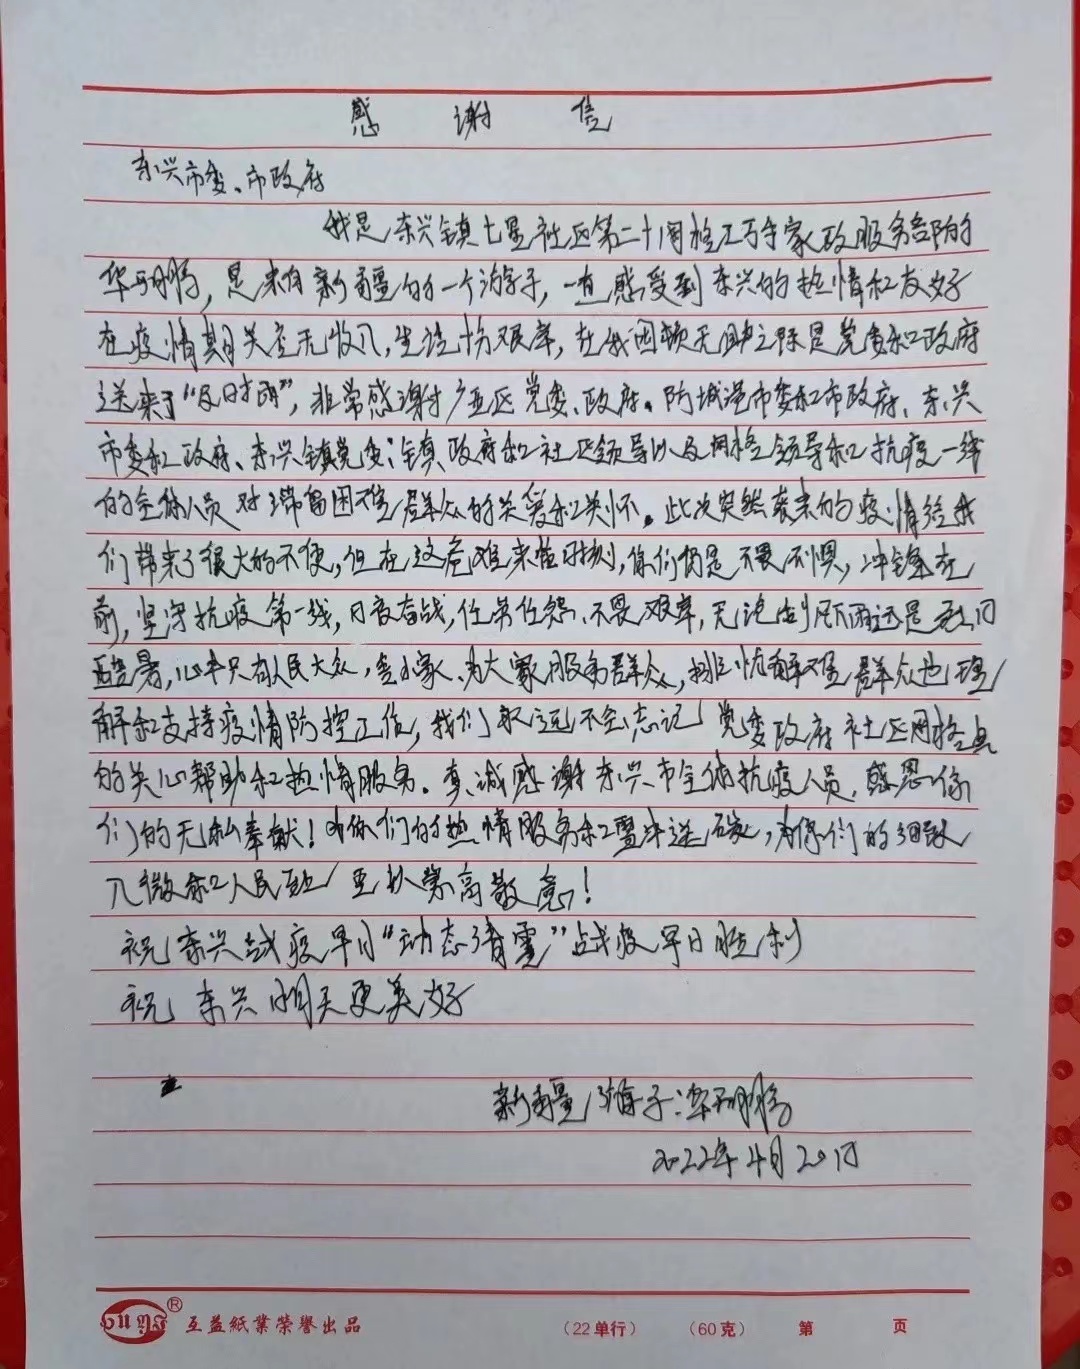 感谢信
东兴市委、市政府
我是东兴镇七星社区第二十网格工万手家政服务部的
华明肠，是来自新疆的一个游子，一直感受到东兴的热情和友好
在疫情期关空无收入，生活十分艰辛，在我困顿无助之际是党委和政府
送来了“及时雨”，非常感谢广西区党委、政府。防城港市委和市政府、东兴
市委和政府、东兴镇党委；镇政府和社区领导以及网格领导和抗疫一线
的全体人员对滞留困难群众的关爱和关怀。此次突然袭来的疫情给我
们带来了很大的不便，但在这危难来临时刻，你们仍是不畏不惧，冲锋在
前，坚守抗疫第一线，日夜奋战，任劳任怨，不畏艰辛，无论刮风下雨还是烈日
酷暑，心中只有人民大众，舍小家、为大家服务群众，排忧解难群众也理
解和支持疫情防控工作，我们永远不会忘记党委政府社区网格员
的关心帮助和热情服务。真诚感谢东兴市全体抗疫人员，感恩你
们的无私奉献！为你们的热情服务和雪中送碳，为你们的细致
入微和人民至上
祝东兴战疫早日“动态清零”战疫早日胜利
祝东兴明天更美好
新疆游子：华明肠
2022年4月20日
互益紙業榮譽出品
（22单行） （60克） 第 页